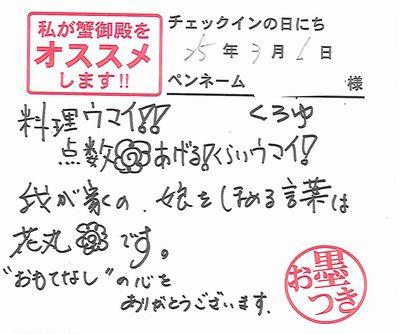 私が蟹御殿を
オススメ
します!!
チェックインの日にち
15年3月1日
ペンネーム 様
くろゆ
料理ウマイ!!
点数あげる!くらいウマイ!
我が家の、娘をほめる言葉は
花丸です。
"おもてなし"の心を
ありがとうございます.
お墨つき